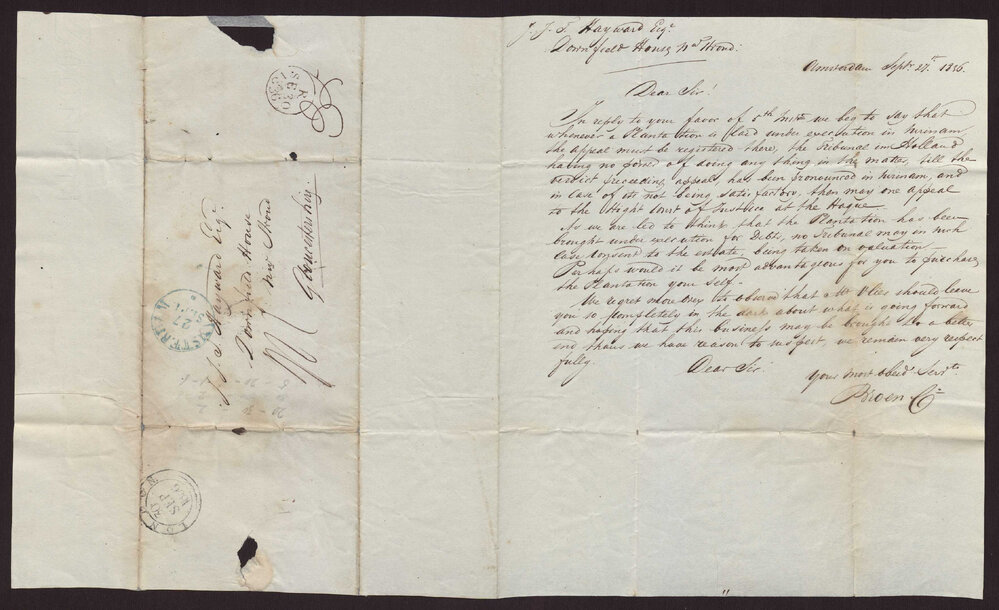 J. J. S. Hayward Esqr.
Downfield House nr. Stroud:
Amsterdam Septr. 27th. 1836.
Dear Sir!
In reply to your favor of 5th inst. we beg to say that
whenever a Plantation is laid under execution in Surinam
the appeal must be registered there, the Tribunal in Holland
having no power of doing any thing in the matter, till the
verdict preceeding appeal, has been pronounced in Surinam, and
in case of its not being satisfactory, then may one appeal
to the Hoght Court of Justice at the Hague.
As we are led to think that the Plantation has been
brought under execution for Debts, no Tribunal may in such
case consent to the estate, being taken on valuation.—
Perhaps would it be most advantageous for you to purchase
the Plantation your self.—
We regret more over to observe that Mr. Vlies should leave
you so completely in the dark about what is going forward
and hoping that this business may be brought to a better
end than we have reason to suspect, we remain very respect
fully.
Dear Sir
Your most obedt. Servts.
Broen Co.
J. J. S. Hayward Esqr.
Downfield House
near Stroud
Gloucestershire.
AMSTERDAM
27
SEP
SE 30
1836
30
SEP
1836